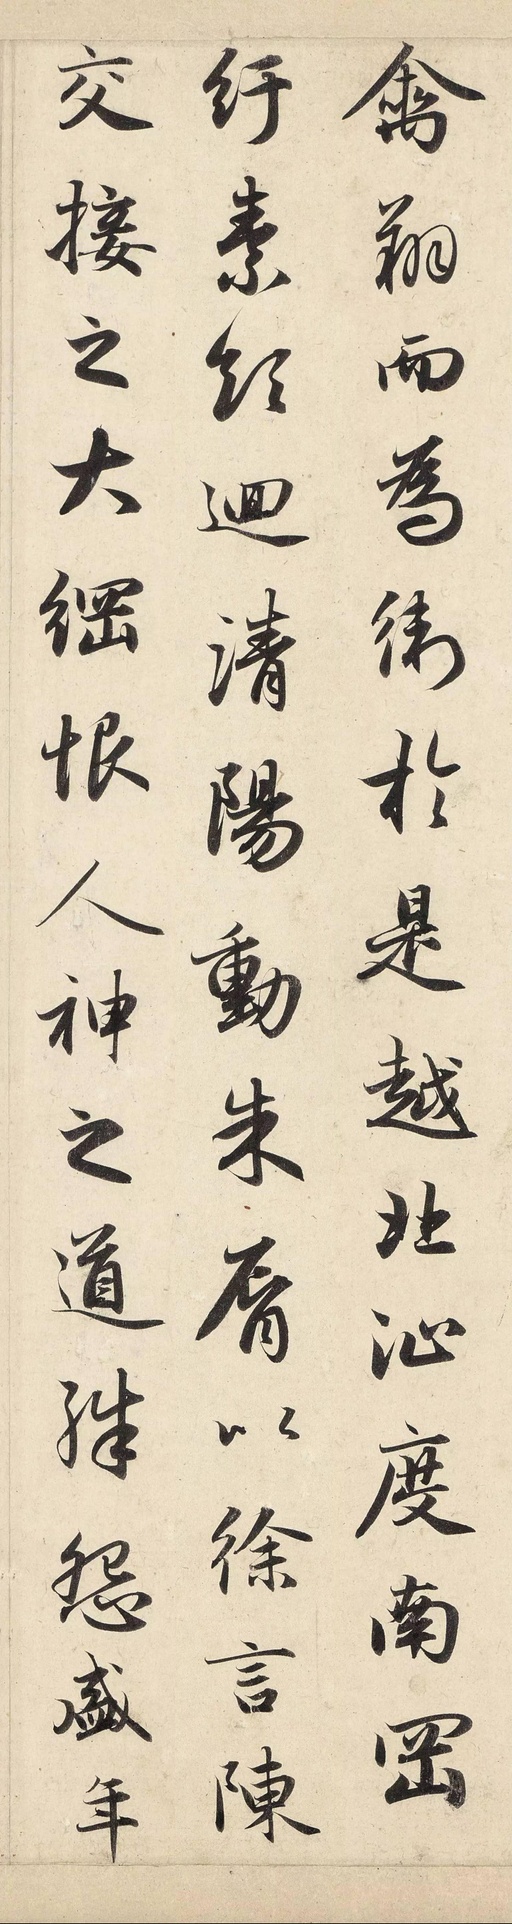 禽翔而為衛於是越北沚度南岡
紆素領迴清陽動朱脣以徐言陳
交接之大綱恨人神之道殊怨盛年